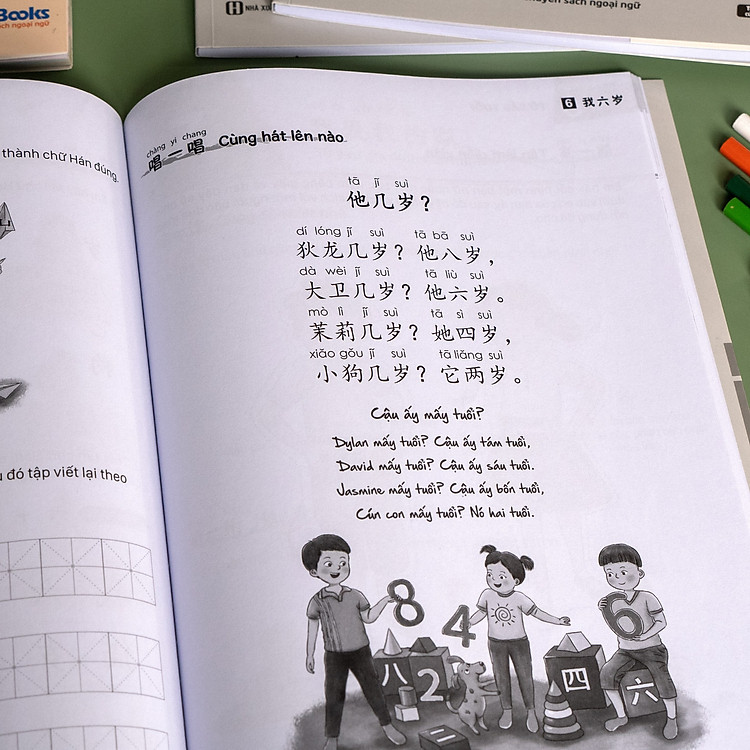 Books
ngoại ngữ
NHÀ
sách ngoại ngữ
thành chữ Hán đúng.
đó tập viết lại theo
6 我六岁
chàng yi chang
唱一唱 Cùng hát lên nào
tā jǐ suì
他几岁？
dí lóng jǐ suì tā bā suì
狄龙几岁？他八岁，
dà wèi jǐ suì tā liù suì
大卫几岁？他六岁。
mò lì jǐ suì tā sì suì
茉莉几岁？她四岁，
xiǎo gǒu jǐ suì tā liǎng suì
小狗几岁？它两岁。
Cậu ấy mấy tuổi?
Dylan mấy tuổi? Cậu ấy tám tuổi,
David mấy tuổi? Cậu ấy sáu tuổi.
Jasmine mấy tuổi? Cậu ấy bốn tuổi,
Cún con mấy tuổi? Nó hai tuổi.
8
4
6
八
2
四
六
二